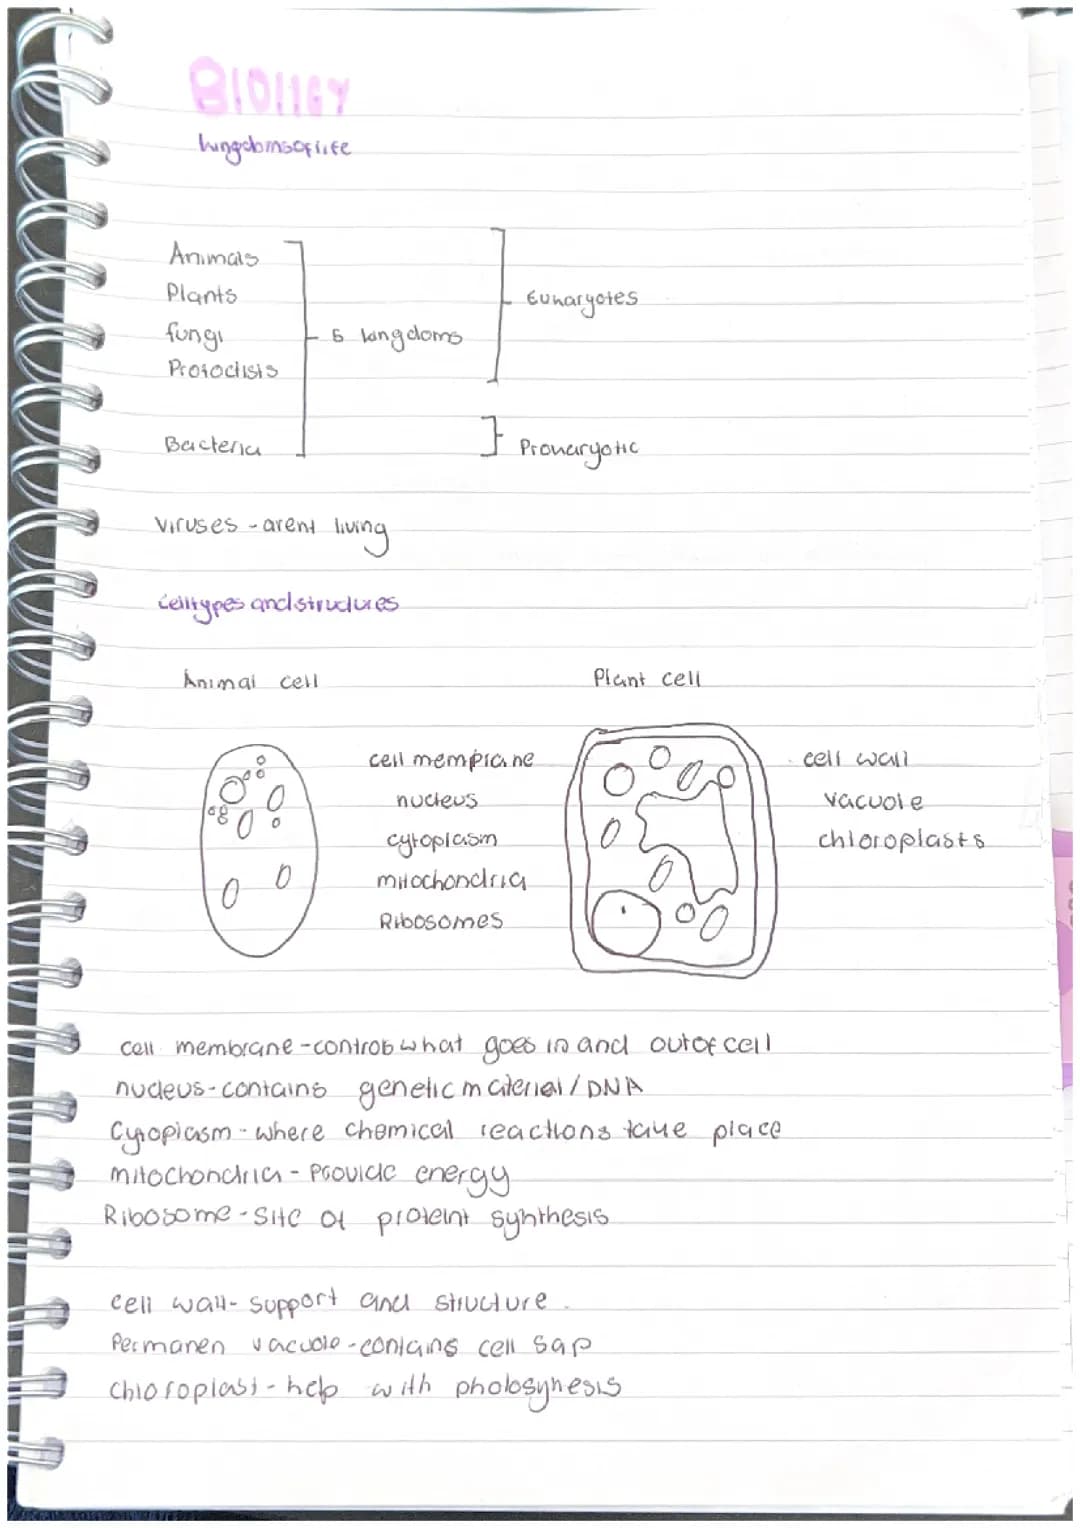 BIOllGY
kingdomsoflife
Animals
Plants
fungi
Protoctists
5 kingdoms
Eukaryotes
Bacteria
Prokaryotic
Viruses - arent living
Celltypes and structures
Animal cell
Plant cell
cell membrane
nucleus
cytoplasm
mitochondria
Ribosomes
cell wall
vacuole
chloroplasts
cell membrane - controls what goes in and out of cell
nucleus - contains genetic material / DNA
Cytoplasm - where chemical reactions take place
mitochondria - Provide energy
Ribosome - Site of proteint synthesis
cell wall - support and structure.
Permanen vacuole - contains cell sap
chloroplast - help with photosynesis